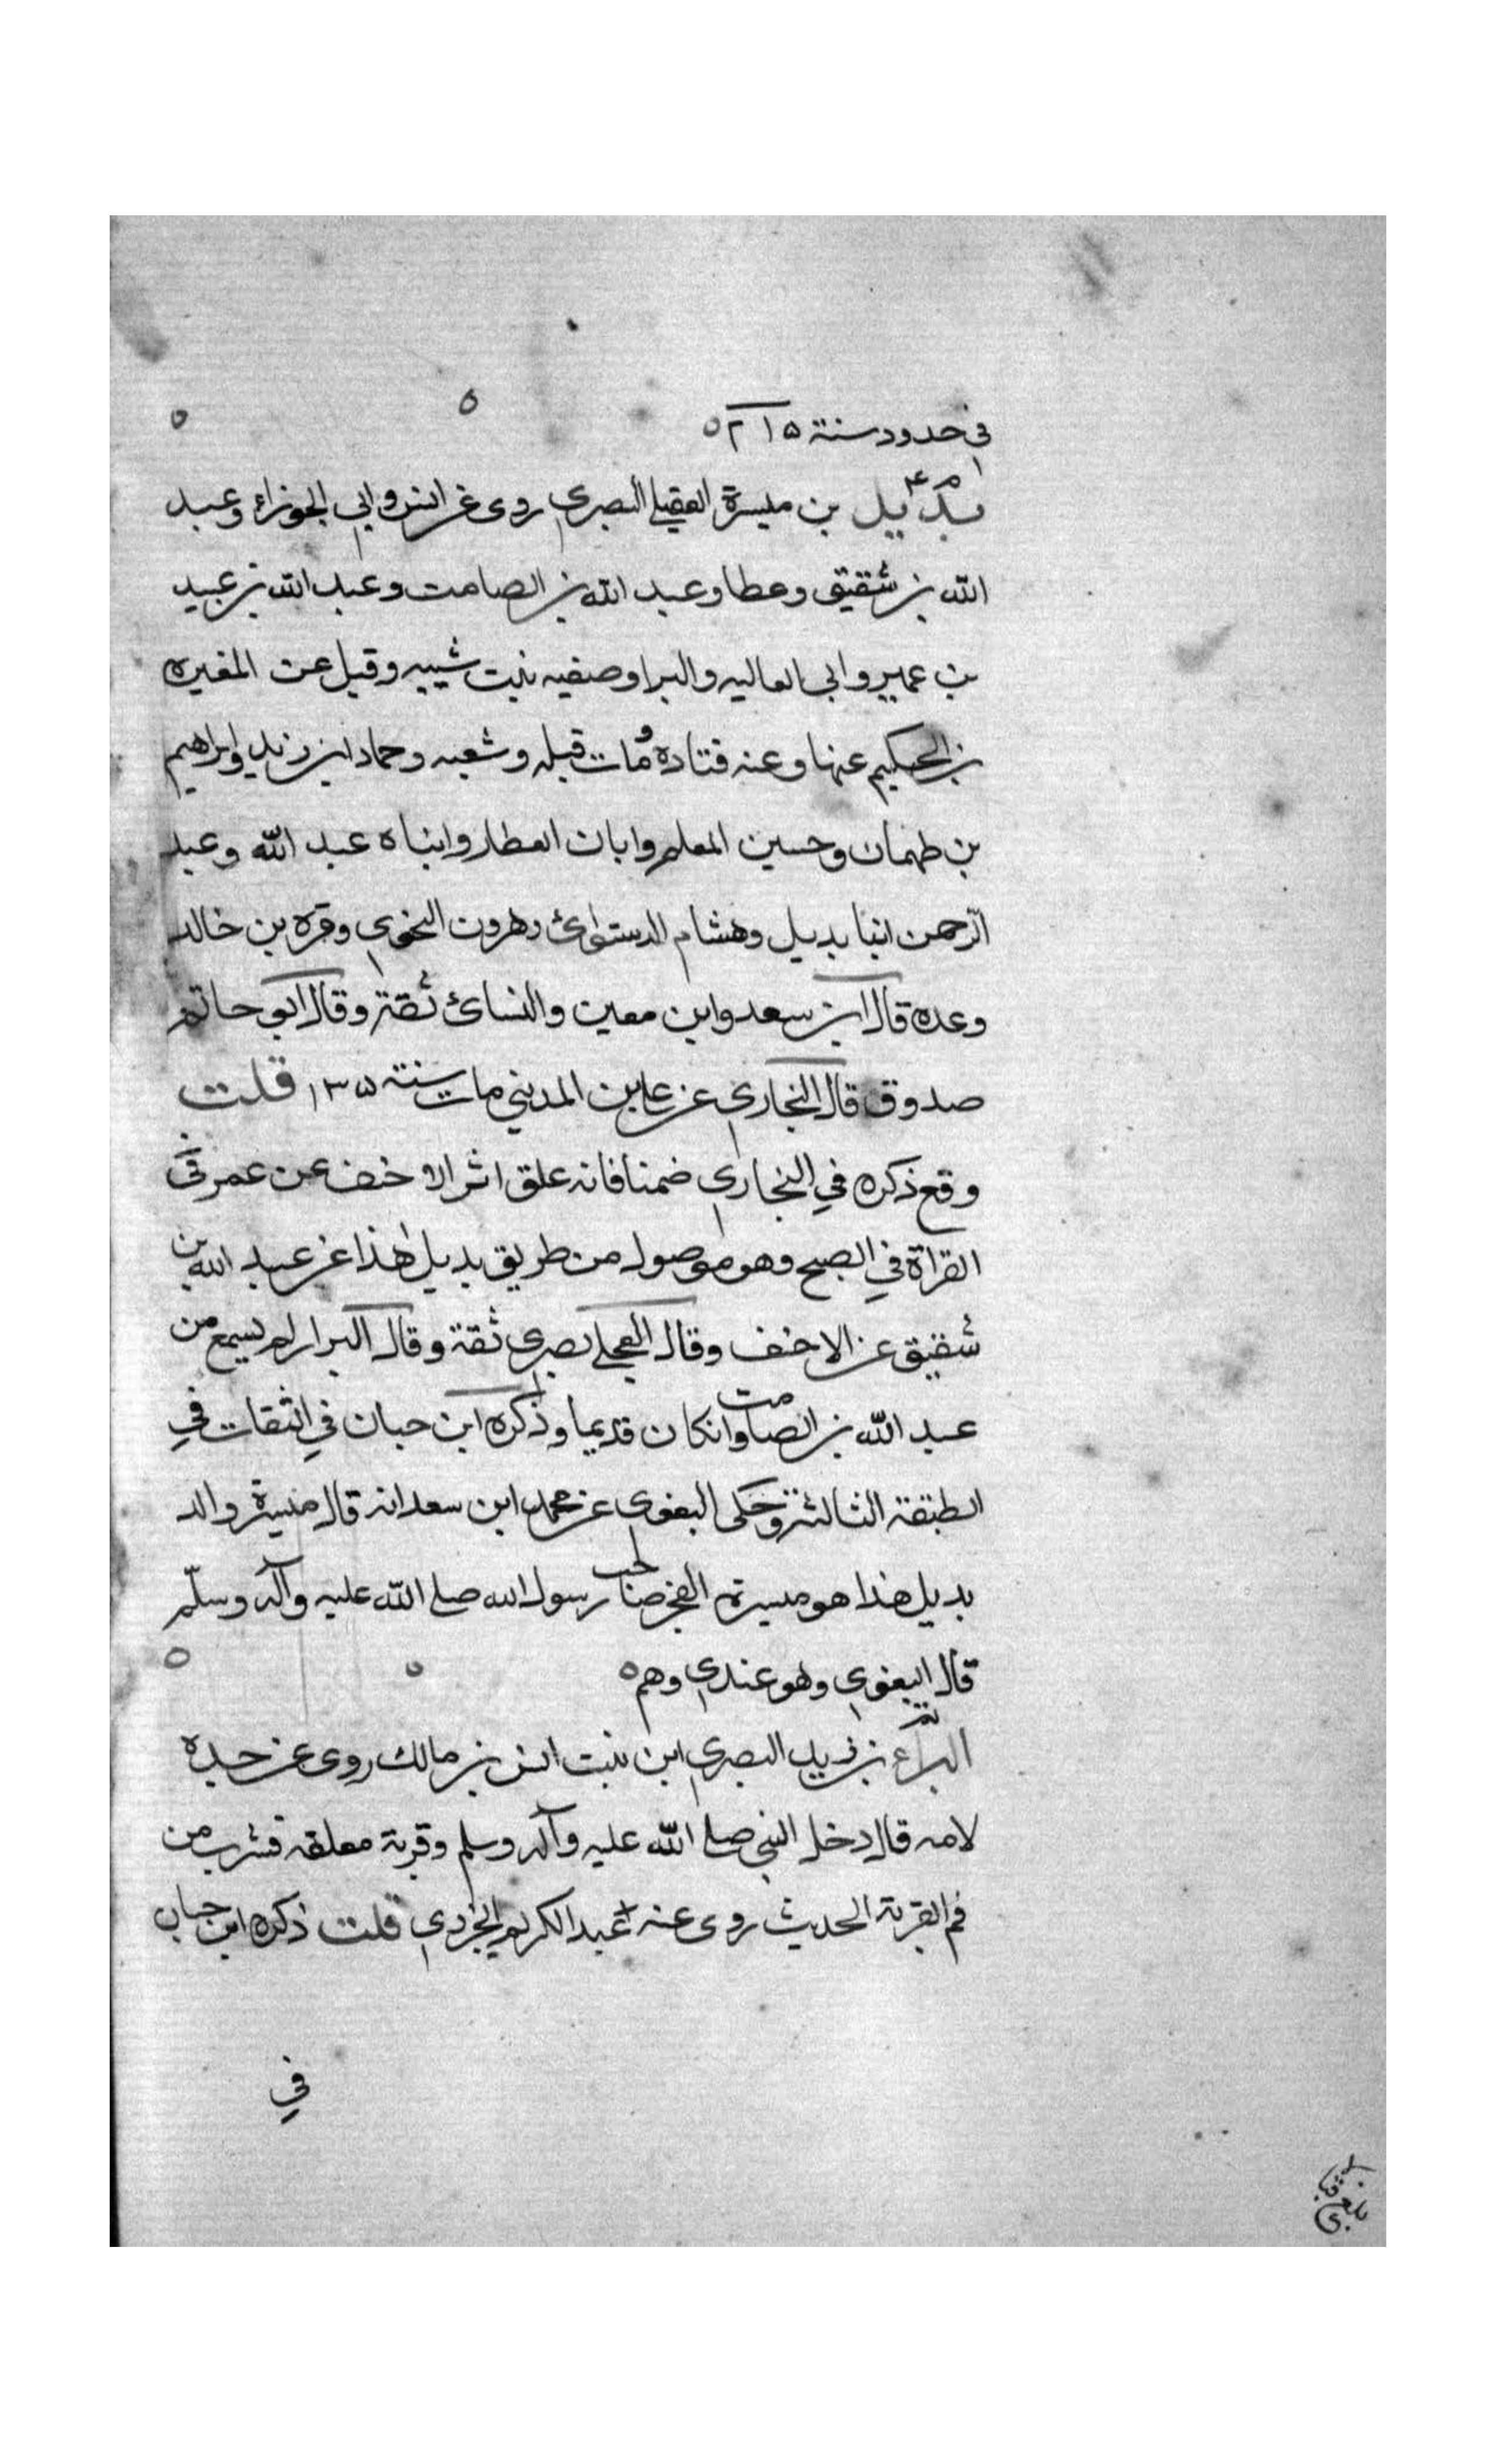 في حدود سنة ٢١٥
بديل بن ميسرة العقيلي البصري روى عن انس وابي الجوزاء وعبد
الله بن شقيق وعطا وعبد الله بن الصامت وعبد الله بن عبيد
بن عمير وابي العاليه والبرا وصفيه بنت شيبه وقيل عن المغيره
بن الحكيم عنها وعنه قتاده ومات قبله وشعبه وحماد ابن زيد وابراهيم
بن طهمان وحسين المعلم وابان العطار وابناه عبد الله وعبد
الرحمن ابنا بديل وهشام الدستوائ وهرون النحوي وقره بن خالد
وعده قال ابن سعد وابن معين والنسائ ثقة وقال ابو حاتم
صدوق قال البخاري عن علي بن المديني مات سنة ١٣٥ قلت
وقع ذكره في البخاري ضمنا فانه علق اثر الاخنف عن عمر في
القراة في الصبح وهو موصول من طريق بديل هذا عن عبد الله بن
شقيق عن الاخنف وقال العجلي بصري ثقة وقال البزار لم يسمع من
عبد الله بن الصامت وانكان قديما وذكره ابن حبان في الثقات في
الطبقة الثالثة وحكى البغوي عن محمد ابن سعد انه قال ميسرة والد
بديل هذا هو ميسرة الفجر صاحب رسول الله صلى الله عليه وآله وسلم
قال البغوي وهو عندي وهم
البراء بن زيد البصري ابن بنت انس بن مالك روى عن جده
لامه قال دخل النبي صلى الله عليه وآله وسلم وقربة معلقه فشرب من
فم القربة الحديث روى عنه عبد الكريم الجزري قلت ذكره ابن حبان
في